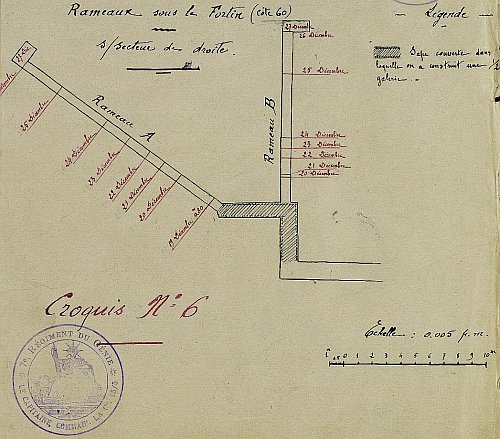 Rameaux sous le Fortin (côte 60)
s/secteur de droite.
Légende
Sape couverte dans
laquelle on a construit une 1/2
galerie.
Rameau A
27 Déc
25 Décembre
24 Décembre
23 Décembre
22 Décembre
21 Décembre
20 Décembre
19 Décembre
Rameau B
27 Décembre
26 Décembre
25 Décembre
24 Décembre
23 Décembre
22 Décembre
21 Décembre
20 Décembre
Croquis N° 6
7e RÉGIMENT DU GÉNIE
LE CAPITAINE COMMANDt LA Cie 15/5
Échelle : 0.005 p.m.
0 1 2 3 4 5 6 7 8 9 10m